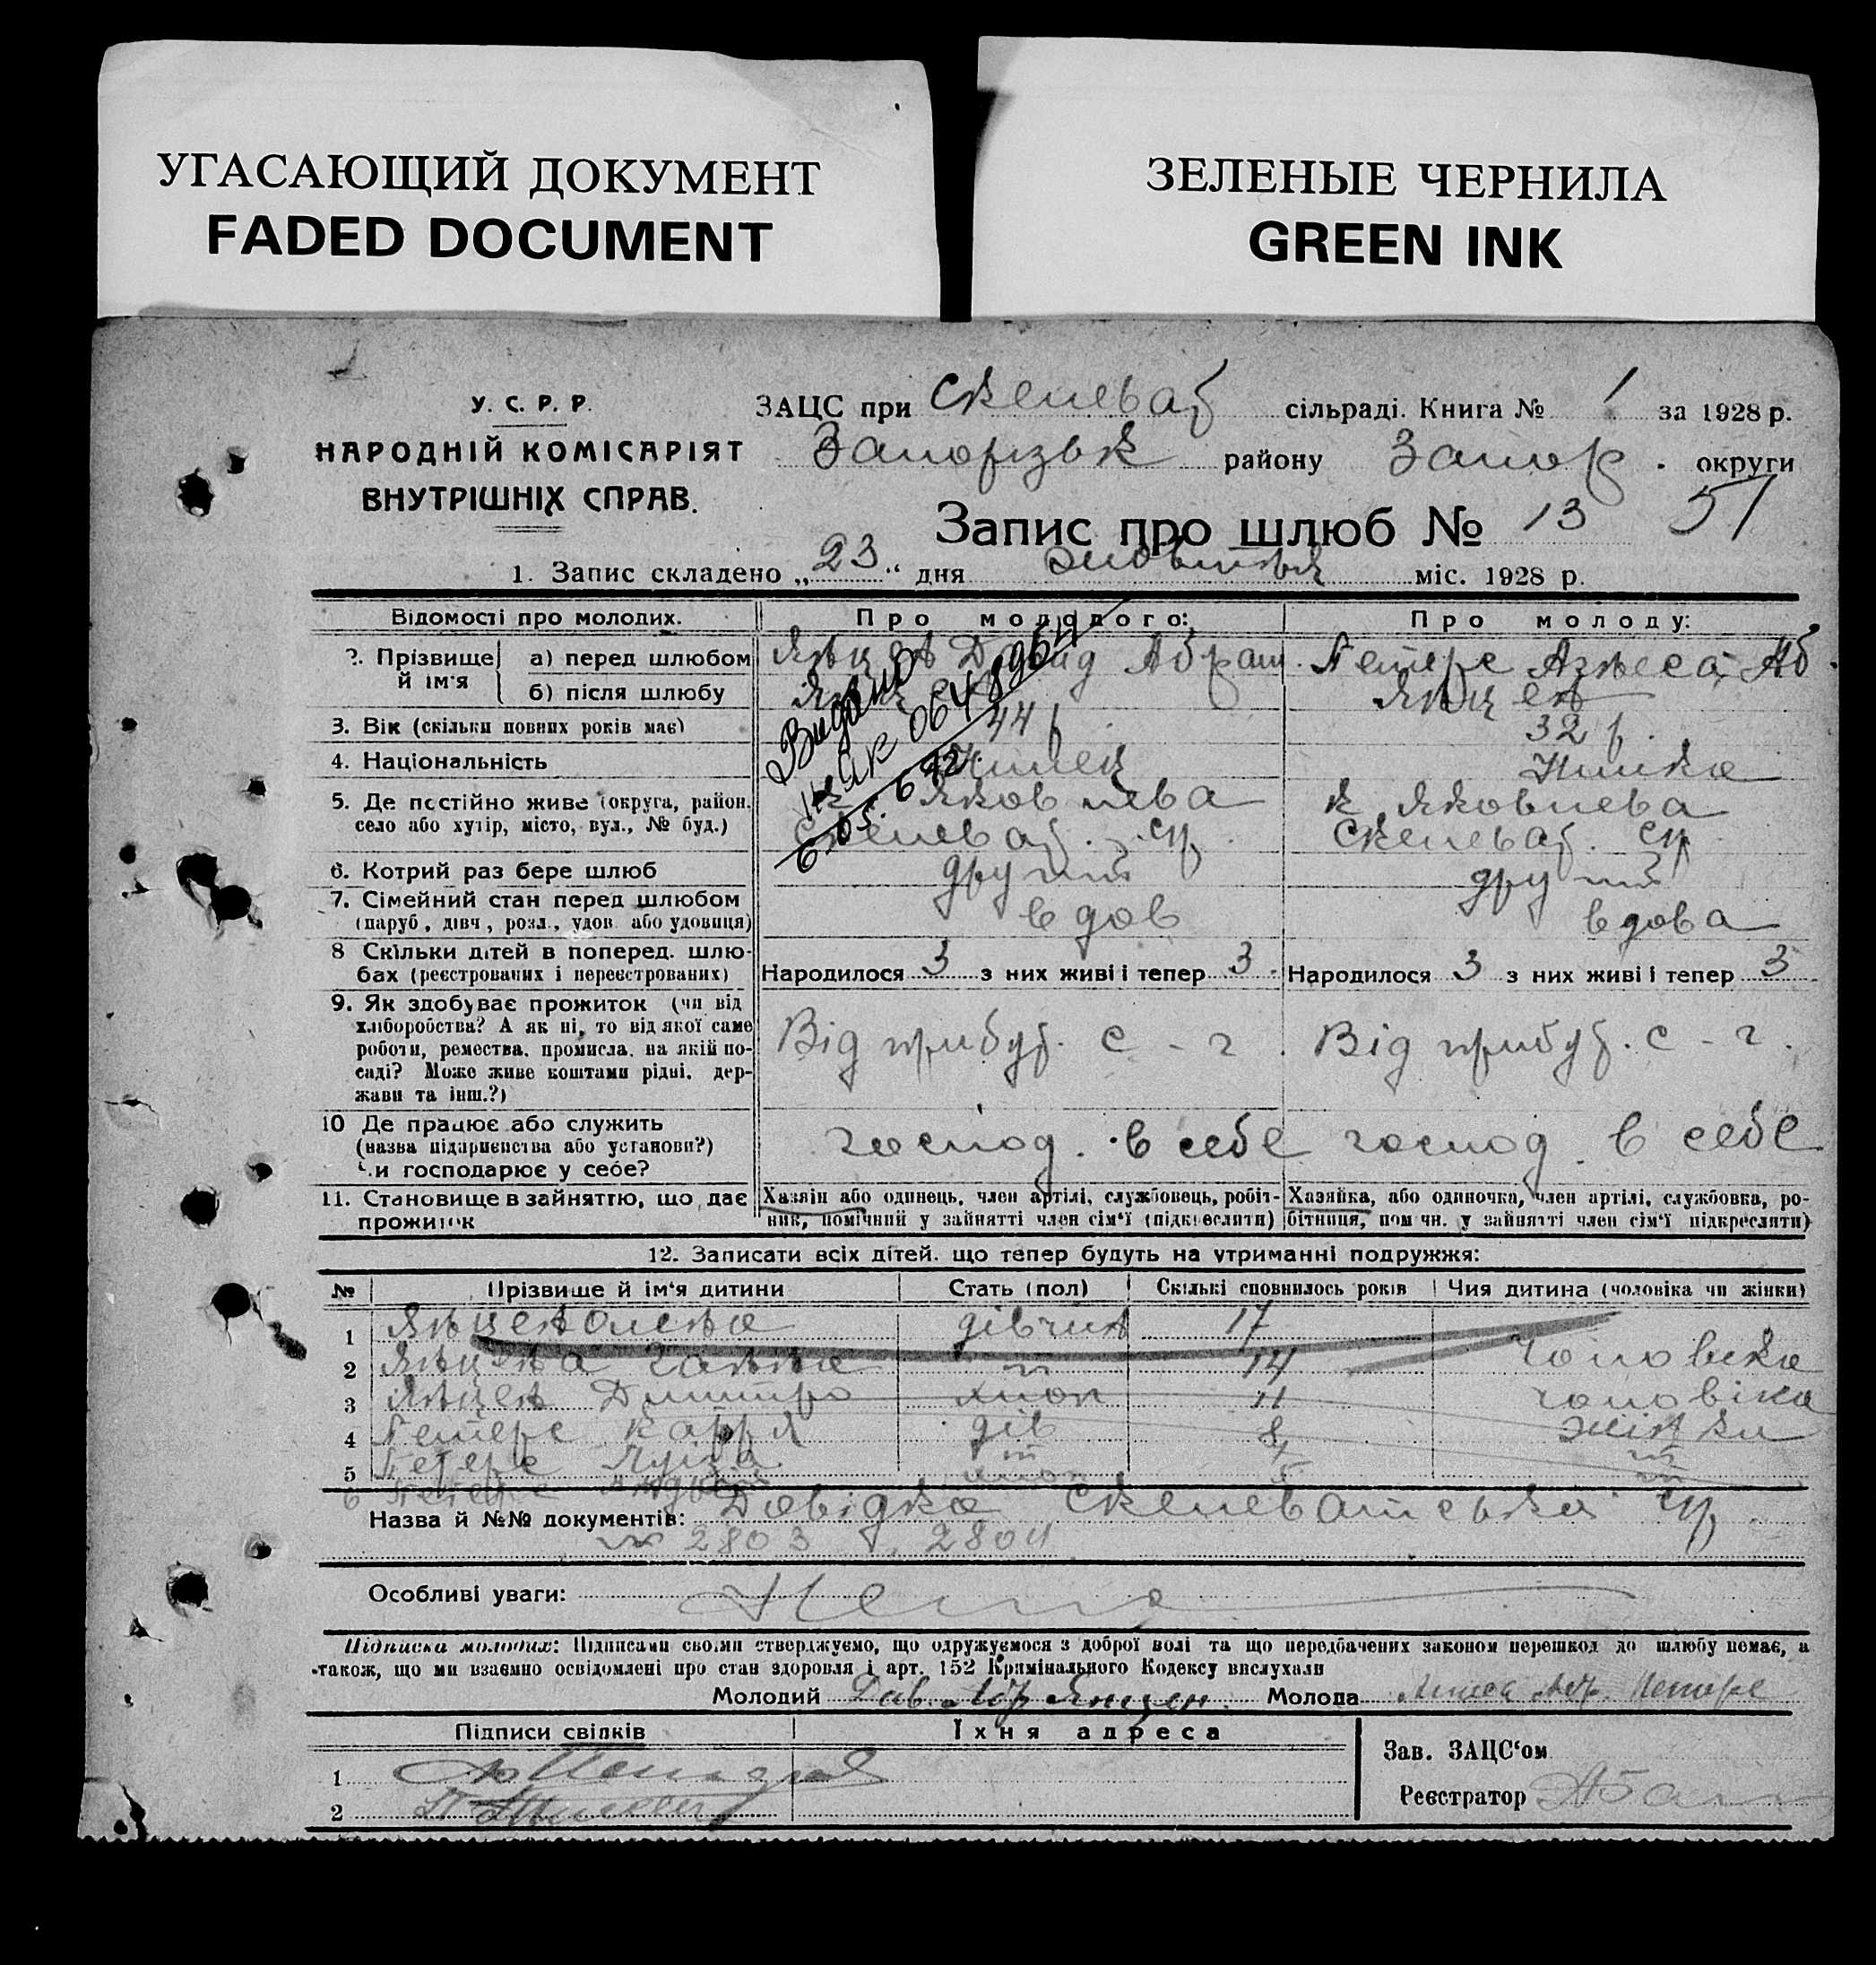 УГАСАЮЩИЙ ДОКУМЕНТ
FADED DOCUMENT
ЗЕЛЕНЫЕ ЧЕРНИЛА
GREEN INK
У. С. Р. Р.
НАРОДНІЙ КОМІСАРІЯТ
ВНУТРІШНІХ СПРАВ.
ЗАЦС при Скелеват сільраді. Книга № 1 за 1928 р.
Запорізьк району Запор. округи
Запис про шлюб № 13 51
1. Запис складено „23“ дня жовтня міс. 1928 р.
Відомості про молодих. Про молодого: Про молоду:
2. Прізвище й ім'я а) перед шлюбом Янцен Давид Абрам. Петерс Агнеса Аб.
б) після шлюбу Янцен Янцен
3. Вік (скільки повних років має) 44 р. 32 р.
4. Національність Німец Німка
5. Де постійно живе (округа, район. к Яковлева к Яковлева
село або хутір, місто, вул., № буд.) Скелеват. ср. Скелеват. ср.
6. Котрий раз бере шлюб другий другий
7. Сімейний стан перед шлюбом
(паруб., дівч., розл., удов. або удовиця) вдов вдова
8 Скільки дітей в поперед. шлю-
бах (реєстрованих і нереєстрованих) Народилося 3 з них живі і тепер 3. Народилося 3 з них живі і тепер 3
9. Як здобуває прожиток (чи від
хліборобства? А як ні, то від якої саме
роботи, ремества. промисла. на якій по-
саді? Може живе коштами рідні. дер-
жави та інш.?)
Від прибут. с - г. Від прибут. с - г.
10 Де працює або служить
(назва підприємства або установи?)
Чи господарює у себе?
господ. в себе господ. в себе
11. Становище в зайняттю, що дає
прожиток
Хазяїн або одинець, член артілі, службовець, робіт-
ник, помічний у зайнятті член сім'ї (підкреслити)
Хазяйка, або одиночка, член артілі, службовка, ро-
бітниця, пом чн. у зайнятті член сім'ї підкреслити)
Видано
6.05.
12. Записати всіх дітей. що тепер будуть на утриманні подружжя:
№ Прізвище й ім'я дитини Стать (пол) Скількі сповнилось років Чия дитина (чоловіка чи жінки)
1 Янцен Олена дівчин 17
2 Янцена Ганна 14 чоловіка
3 Янцен Дмитро хлоп 11 чоловіка
4 Петерс дів 8 жінки
5 Петерс Луіза
6 Петерс
Назва й №№ документів: Довідка Скелеватська ср.
№ 2803, 2804
Особливі уваги: Нема
Підписка молодих: Підписами своїми стверджуємо, що одружуємося з доброї волі та що передбачених законом перешкод до шлюбу немає, а
також, що ми взаємно освідомлені про стан здоровля і арт. 152 Крімінального Кодексу вислухали
Молодий Дав. Абр Янцен. Молода Агнеса Абр. Петерс
Підписи свідків Їхня адреса
Зав. ЗАЦС'ом
1
Реєстратор
2